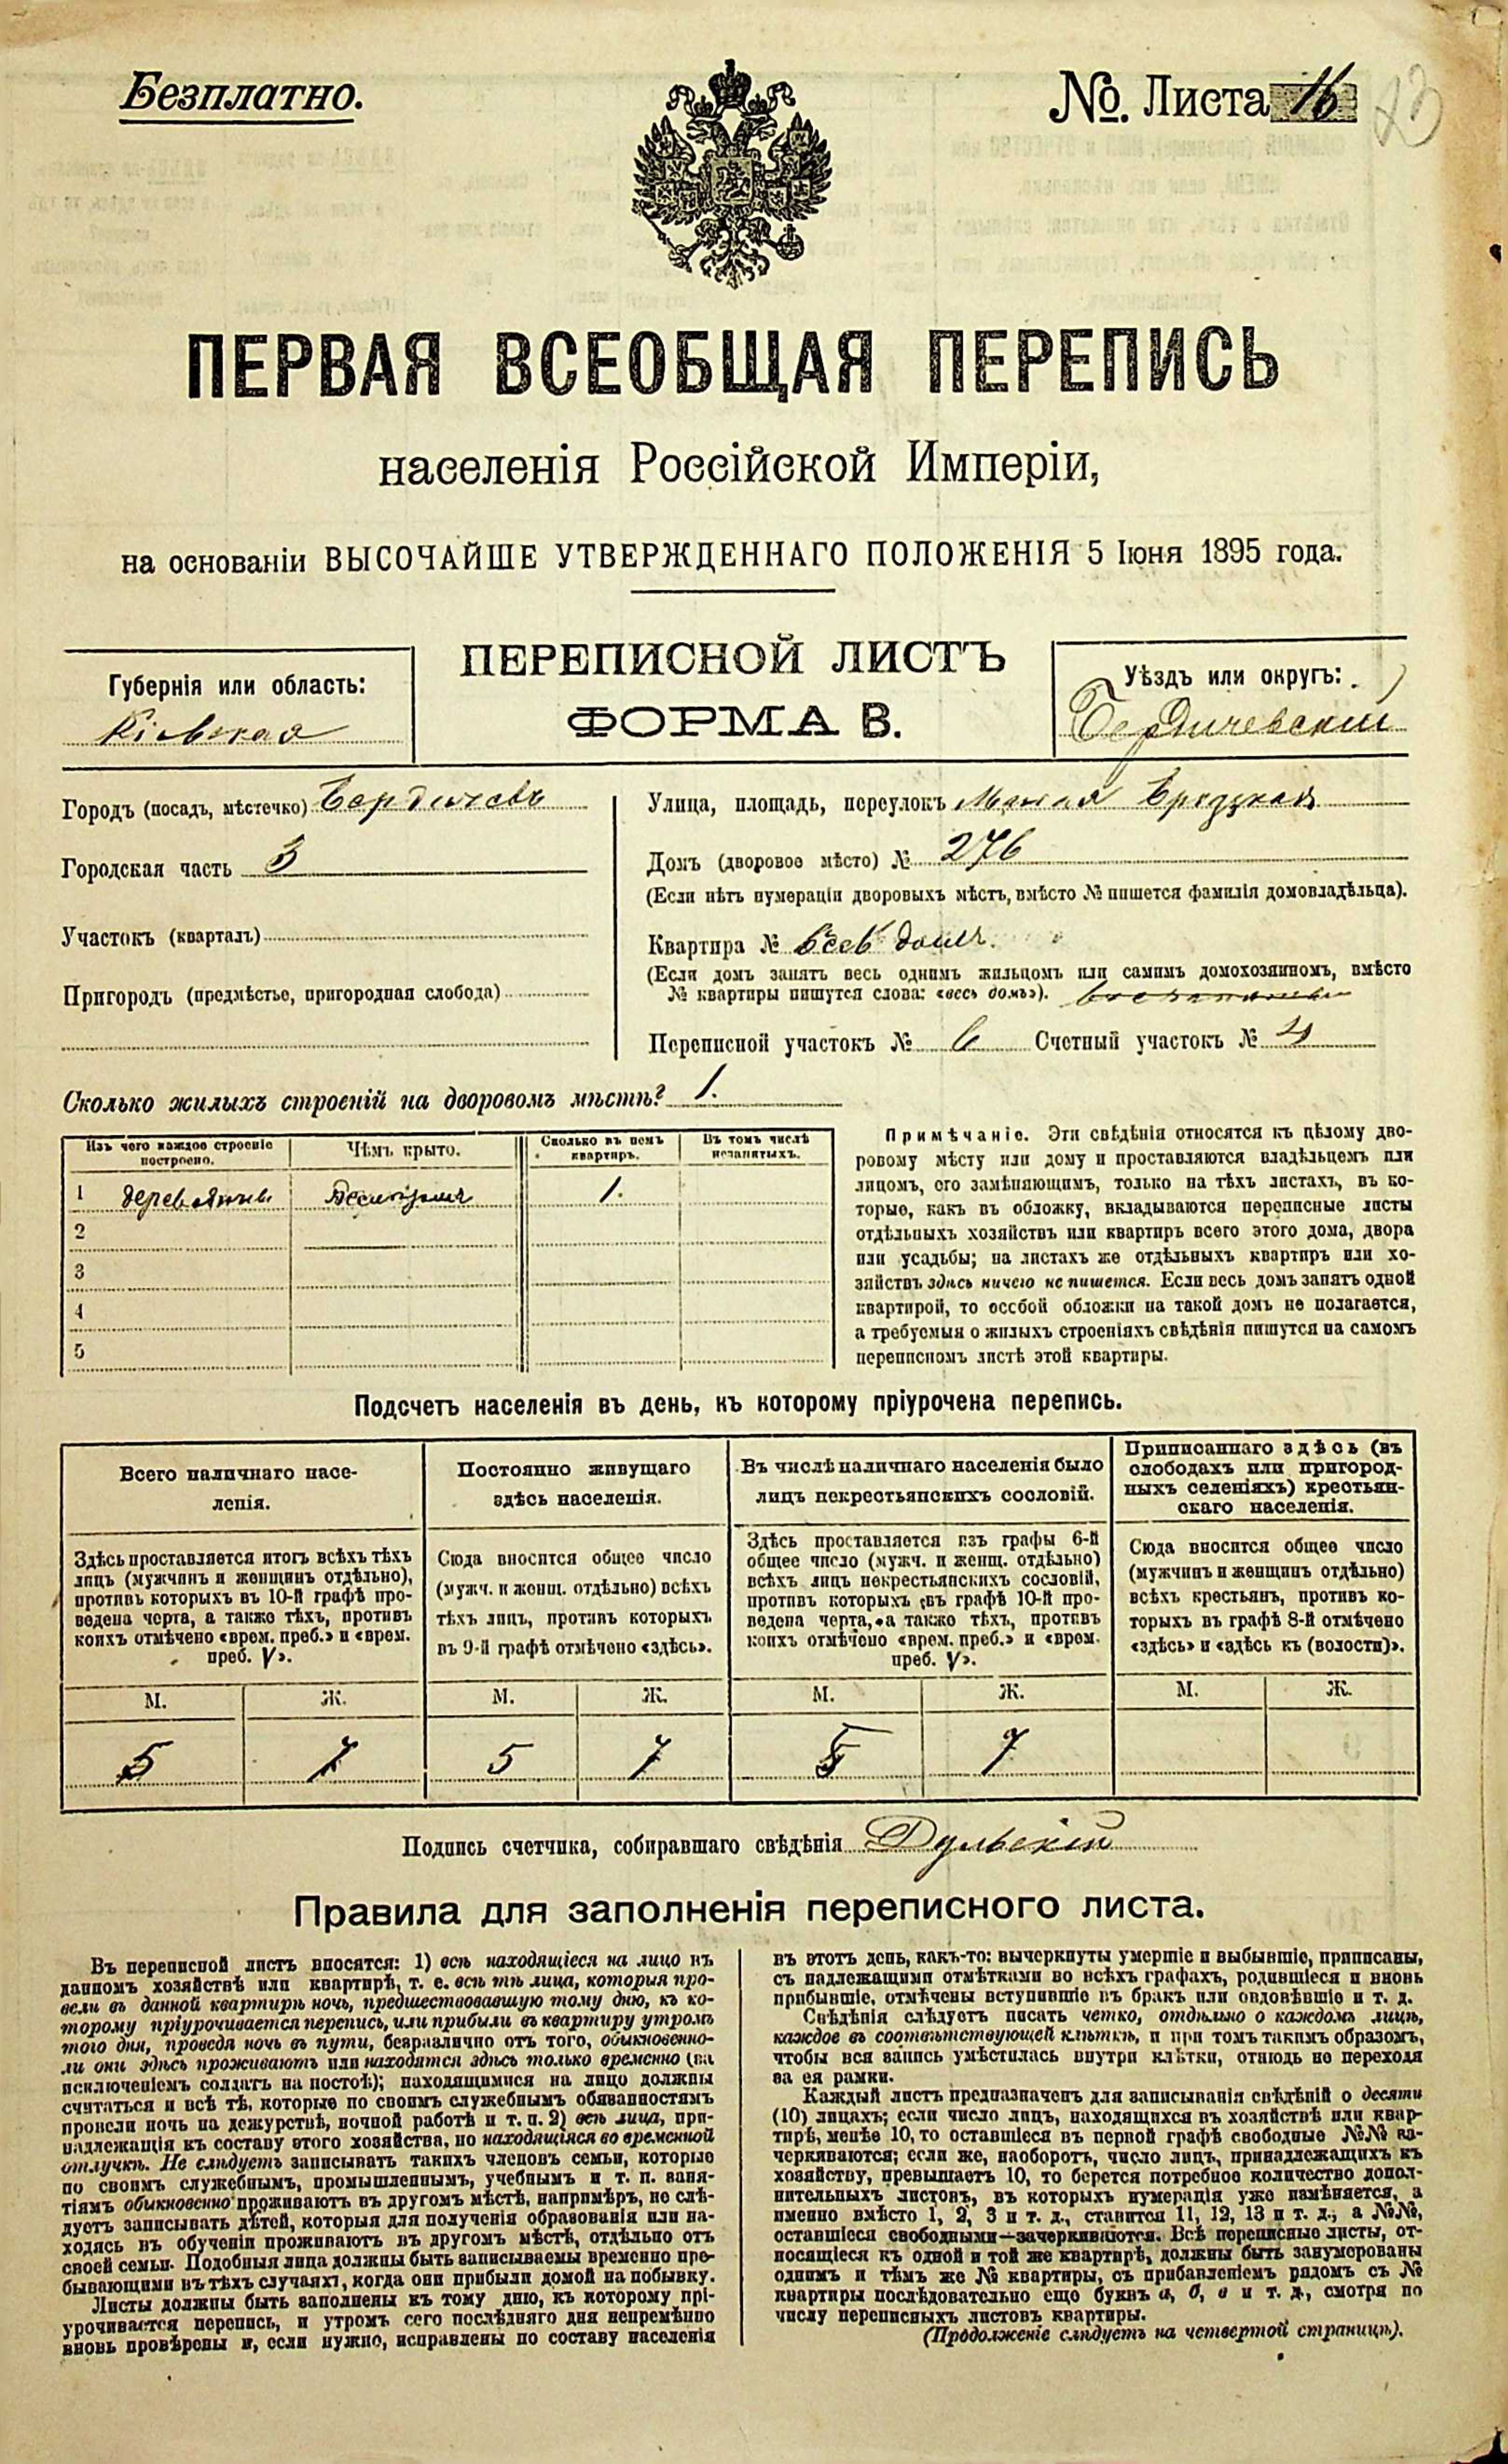 Безплатно.
№. Листа 16
23
ПЕРВАЯ ВСЕОБЩАЯ ПЕРЕПИСЬ
населенія Россійской Имперіи,
на основаніи ВЫСОЧАЙШЕ УТВЕРЖДЕННАГО ПОЛОЖЕНІЯ 5 Іюня 1895 года.
ПЕРЕПИСНОЙ ЛИСТЪ
ФОРМА В.
Губернія или область:
Кіевская
Уѣздъ или округъ:
Бердичевскій
Городъ (посадъ, мѣстечко) Бердичевъ
Городская часть 3
Участокъ (кварталъ)
Пригородъ (предмѣстье, пригородная слобода)
Улица, площадь, переулокъ Малая Бродзкая
Домъ (дворовое мѣсто) № 276
(Если нѣтъ нумераціи дворовыхъ мѣстъ, вмѣсто № пишется фамилія домовладѣльца).
Квартира № весь домъ.
(Если домъ занятъ весь однимъ жильцомъ или самимъ домохозяиномъ, вмѣсто
№ квартиры пишутся слова: «весь домъ»).
Переписной участокъ № 6 Счетный участокъ № 4
Сколько жилыхъ строеній на дворовомъ мѣстѣ? 1.
Изъ чего каждое строеніе
построено.
Чѣмъ крыто.
Сколько въ немъ
квартиръ.
Въ томъ числѣ
незанятыхъ.
1 деревянн. 1.
2
3
4
5
Примѣчаніе. Эти свѣдѣнія относятся къ цѣлому дво-
ровому мѣсту или дому и проставляются владѣльцемъ или
лицомъ, его замѣняющимъ, только на тѣхъ листахъ, въ ко-
торые, какъ въ обложку, вкладываются переписные листы
отдѣльныхъ хозяйствъ или квартиръ всего этого дома, двора
или усадьбы; на листахъ же отдѣльныхъ квартиръ или хо-
зяйствъ здѣсь ничего не пишется. Если весь домъ занятъ одной
квартирой, то особой обложки на такой домъ не полагается,
а требуемыя о жилыхъ строеніяхъ свѣдѣнія пишутся на самомъ
переписномъ листѣ этой квартиры.
Подсчетъ населенія въ день, къ которому пріурочена перепись.
Всего наличнаго насе-
ленія.
Постоянно живущаго
здѣсь населенія.
Въ числѣ наличнаго населенія было
лицъ некрестьянскихъ сословій.
Приписаннаго здѣсь (въ
слободахъ или пригород-
ныхъ селеніяхъ) крестьян-
скаго населенія.
Здѣсь проставляется итогъ всѣхъ тѣхъ
лицъ (мужчинъ и женщинъ отдѣльно),
противъ которыхъ въ 10-й графѣ про-
ведена черта, а также тѣхъ, противъ
коихъ отмѣчено «врем. преб.» и «врем.
преб. V».
Сюда вносится общее число
(мужч. и женщ. отдѣльно) всѣхъ
тѣхъ лицъ, противъ которыхъ
въ 9-й графѣ отмѣчено «здѣсь».
Здѣсь проставляется изъ графы 6-й
общее число (мужч. и женщ. отдѣльно)
всѣхъ лицъ некрестьянскихъ сословій,
противъ которыхъ въ графѣ 10-й про-
ведена черта, а также тѣхъ, противъ
коихъ отмѣчено «врем. преб.» и «врем.
преб. V».
Сюда вносится общее число
(мужчинъ и женщинъ отдѣльно)
всѣхъ крестьянъ, противъ ко-
торыхъ въ графѣ 8-й отмѣчено
«здѣсь» и «здѣсь къ (волости)».
М. Ж. М. Ж. М. Ж. М. Ж.
5 7 5 7 5 7
Подпись счетчика, собиравшаго свѣдѣнія Дульскій
Правила для заполненія переписного листа.
Въ переписной листъ вносятся: 1) всѣ находящіеся на лицо въ
данномъ хозяйствѣ или квартирѣ, т. е. всѣ тѣ лица, которыя про-
вели въ данной квартирѣ ночь, предшествовавшую тому дню, къ ко-
торому пріурочивается перепись, или прибыли въ квартиру утромъ
того дня, проведя ночь въ пути, безразлично отъ того, обыкновенно-
ли они здѣсь проживаютъ или находятся здѣсь только временно (за
исключеніемъ солдатъ на постоѣ); находящимися на лицо должны
считаться и всѣ тѣ, которые по своимъ служебнымъ обязанностямъ
провели ночь на дежурствѣ, ночной работѣ и т. п. 2) всѣ лица, при-
надлежащія къ составу этого хозяйства, но находящіяся во временной
отлучкѣ. Не слѣдуетъ записывать такихъ членовъ семьи, которые
по своимъ служебнымъ, промышленнымъ, учебнымъ и т. п. заня-
тіямъ обыкновенно проживаютъ въ другомъ мѣстѣ, напримѣръ, не слѣ-
дуетъ записывать дѣтей, которыя для полученія образованія или на-
ходясь въ обученіи проживаютъ въ другомъ мѣстѣ, отдѣльно отъ
своей семьи. Подобныя лица должны быть записываемы временно пре-
бывающими въ тѣхъ случаяхъ, когда они прибыли домой на побывку.
Листы должны быть заполнены къ тому дню, къ которому прі-
урочивается перепись, и утромъ сего послѣдняго дня непремѣнно
вновь провѣрены и, если нужно, исправлены по составу населенія
въ этотъ день, какъ-то: вычеркнуты умершіе и выбывшіе, приписаны,
съ надлежащими отмѣтками во всѣхъ графахъ, родившіеся и вновь
прибывшіе, отмѣчены вступившіе въ бракъ или овдовѣвшіе и т. д.
Свѣдѣнія слѣдуетъ писать четко, отдѣльно о каждомъ лицѣ,
каждое въ соотвѣтствующей клѣткѣ, и при томъ такимъ образомъ,
чтобы вся запись умѣстилась внутри клѣтки, отнюдь не переходя
за ея рамки.
Каждый листъ предназначенъ для записыванія свѣдѣній о десяти
(10) лицахъ; если число лицъ, находящихся въ хозяйствѣ или квар-
тирѣ, менѣе 10, то оставшіеся въ первой графѣ свободные №№ за-
черкиваются; если же, наоборотъ, число лицъ, принадлежащихъ къ
хозяйству, превышаетъ 10, то берется потребное количество допол-
нительныхъ листовъ, въ которыхъ нумерація уже измѣняется, а
именно вмѣсто 1, 2, 3 и т. д., ставится 11, 12, 13 и т. д., а №№,
оставшіеся свободными—зачеркиваются. Всѣ переписные листы, от-
носящіеся къ одной и той же квартирѣ, должны быть занумерованы
однимъ и тѣмъ же № квартиры, съ прибавленіемъ рядомъ съ №
квартиры послѣдовательно еще буквъ а, б, в и т. д., смотря по
числу переписныхъ листовъ квартиры.
(Продолженіе слѣдуетъ на четвертой страницѣ).